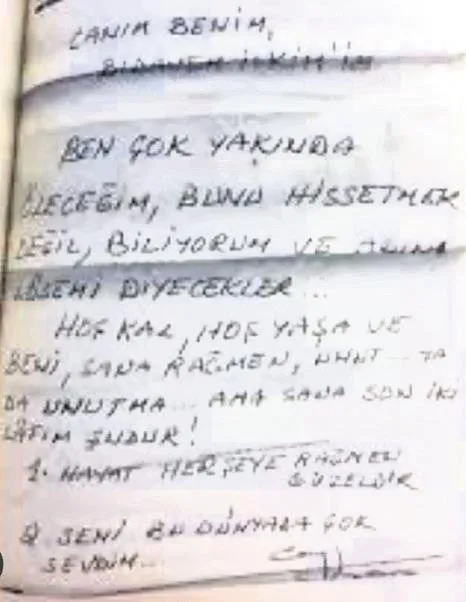 CANIM BENİM,
BİDANEM İLKİM'İM
BEN ÇOK YAKINDA
ÖLECEĞİM, BUNU HİSSETMEK
DEĞİL, BİLİYORUM VE ADINA
LÖSEMİ DİYECEKLER...
HOŞ KAL, HOŞ YAŞA VE
BENİ, SANA RAĞMEN, UNUT... YA
DA UNUTMA... AMA SANA SON İKİ
LAFIM ŞUDUR!
1. HAYAT HERŞEYE RAĞMEN
GÜZELDİR
2) SENİ BU DÜNYADA ÇOK
SEVDİM...